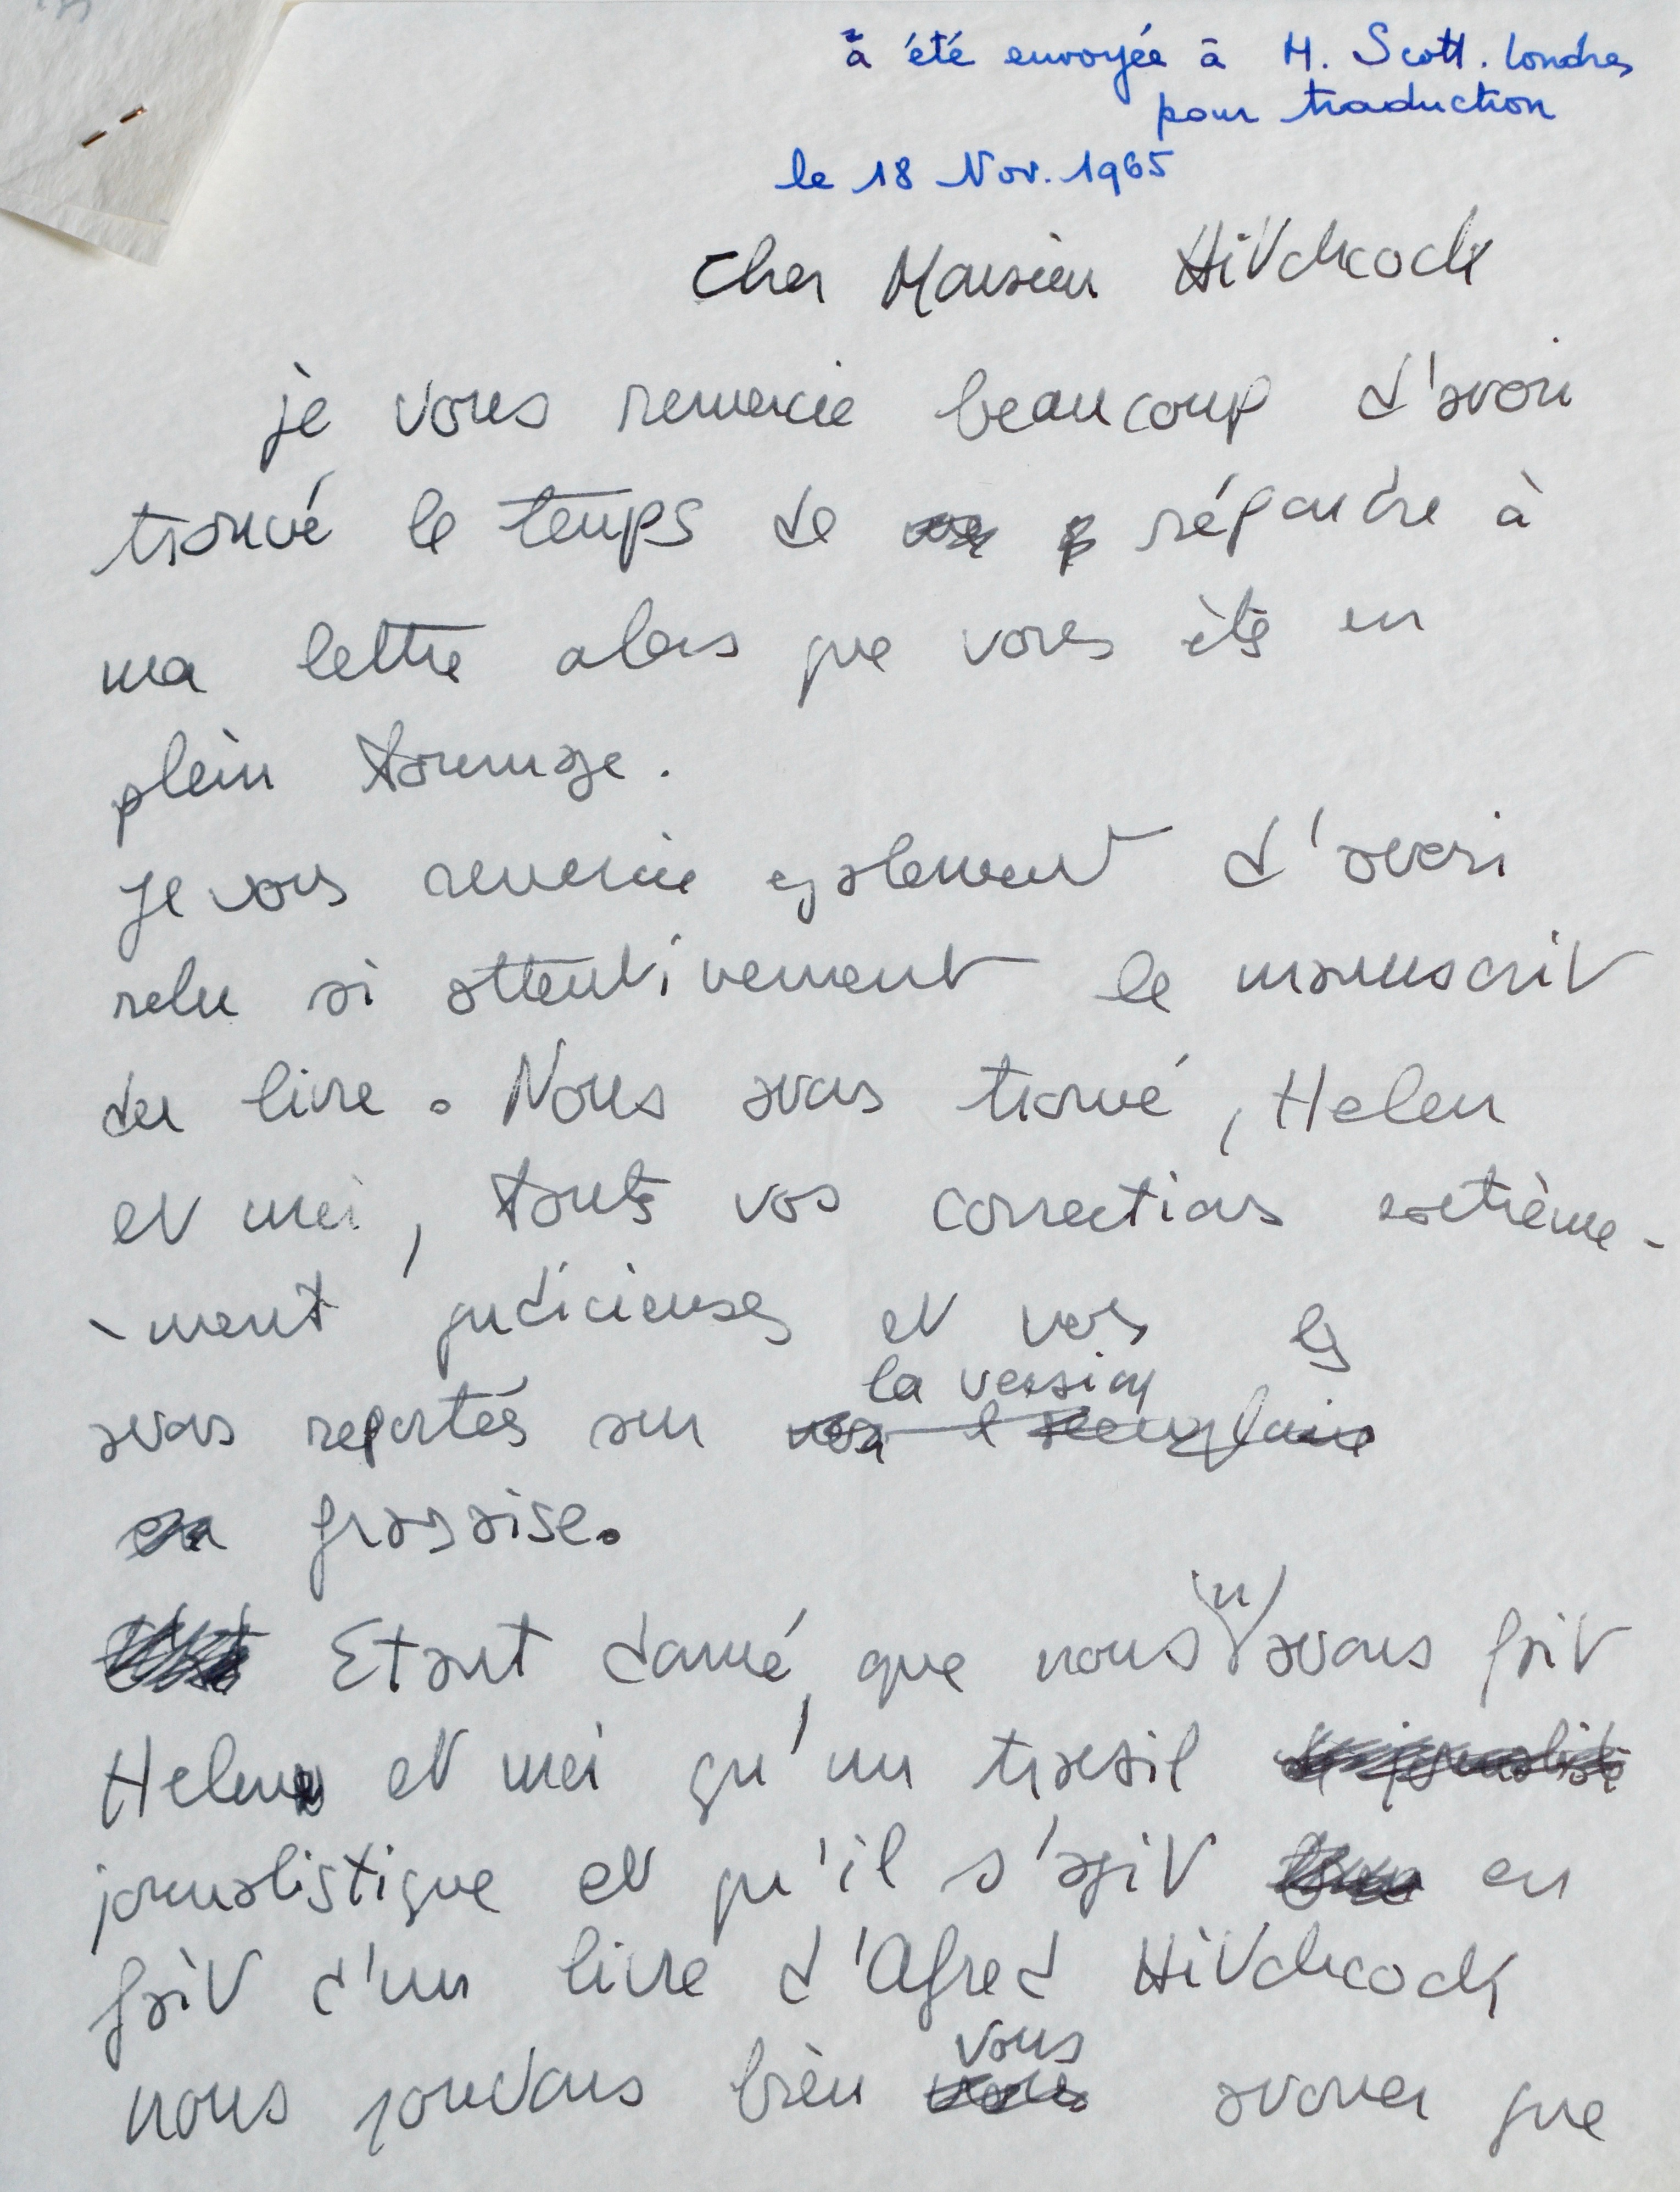 a été envoyée à H. Scott. Londres
pour traduction
le 18 Nov. 1965
Cher Monsieur Hitchcock
je vous remercie beaucoup d'avoir
trouvé le temps de répondre à
ma lettre alors que vous êtes en
plein tournage.
Je vous remercie egalement d'avoir
relu si attentivement le manuscrit
du livre. Nous avons trouvé, Helen
et moi, toutes vos corrections extrème-
-ment judicieuses et nous les
la version
avons reportés sur nos l'exemplaire
en française.
Etant donné, que nous (n') avons fait
Helen et moi qu'un travail journaliste
journalistique et qu'il s'agit en
fait d'un livre d'Afred Hitchcock
vous
nous pouvons bien avouer que